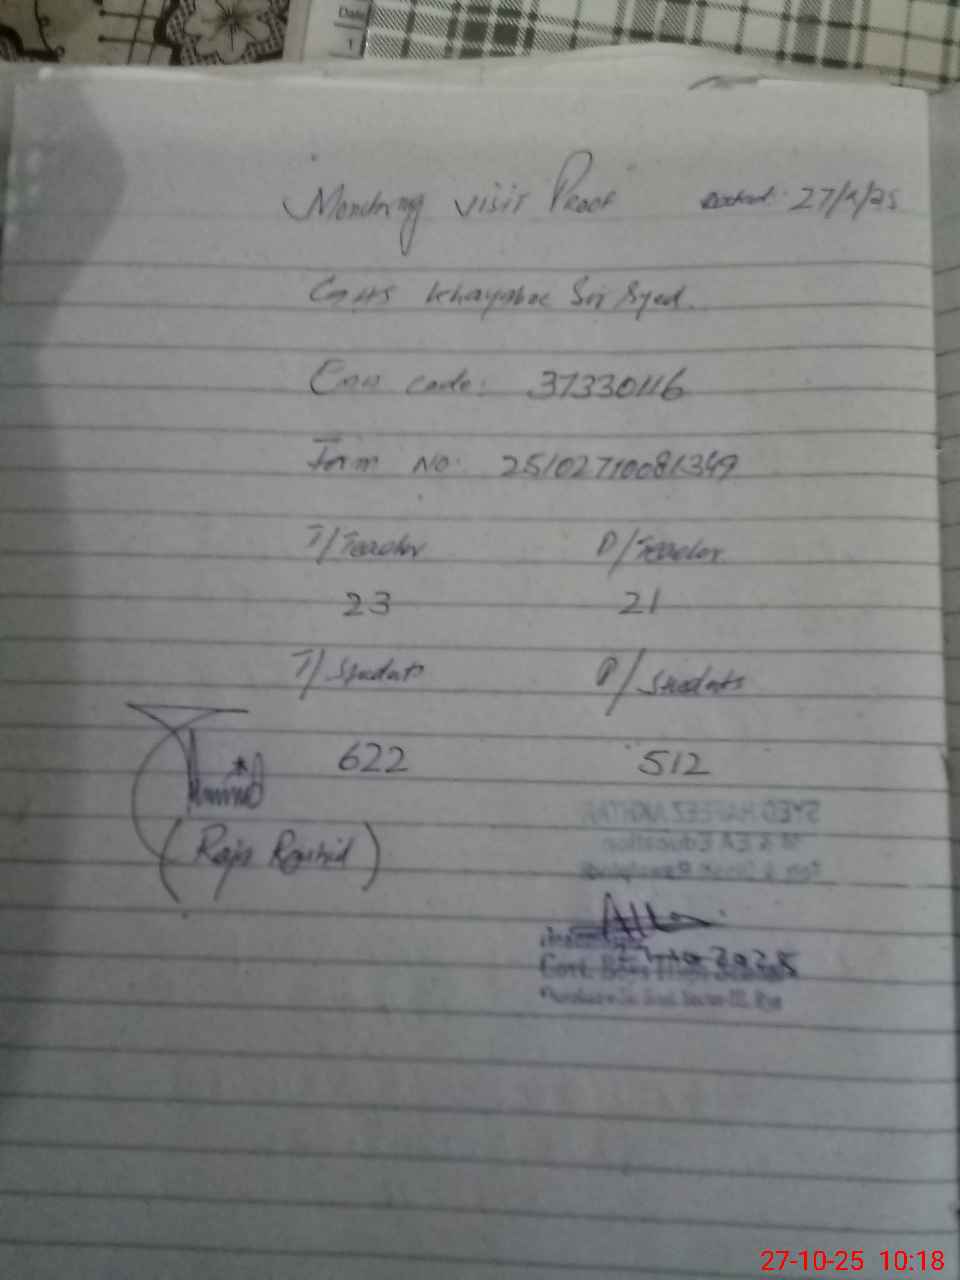 Monitring visit Proof dated: 27/x/25
GBHS Khayabne Sir Syed.
Emis code: 37330116
Form No: 25102710081349
T/Teacher P/Teacher
23 21
T/Students P/Students
622 512
(Raja Rashid)
SYED HAFEEZ AKHTAR
Education
27-10-2025
Govt. Boys High School
27-10-25 10:18